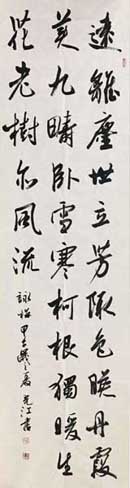 遠離塵世立芳陬色暎丹霞
美九疇卧雪寒柯根獨暖生
花老樹亦風流
詠梅 之夏 江書